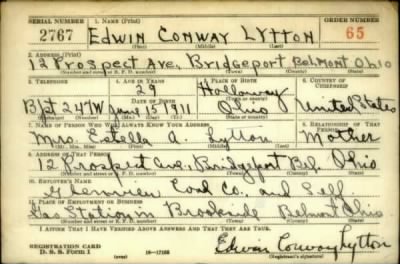 SERIAL NUMBER 1. NAME (Print) ORDER NUMBER
2767 EDWIN CONWAY LYTTON 65
(First) (Middle) (Last)
2. ADDRESS (Print)
12 Prospect Ave, Bridgeport Belmont Ohio
(Number and street or R. F. D. number) (Town) (County) (State)
3. TELEPHONE 4. AGE IN YEARS 5. PLACE OF BIRTH 6. COUNTRY OF CITIZENSHIP
29 Holloway
DATE OF BIRTH
Bpt 247W June 15 1911 Ohio United States
7. NAME OF PERSON WHO WILL ALWAYS KNOW YOUR ADDRESS 8. RELATIONSHIP OF THAT PERSON
Mrs Estella A. Lytton Mother
9. ADDRESS OF THAT PERSON
12 Prospect Ave, Bridgeport Bel. Ohio
(Number and street or R. F. D. number) (Town) (County) (State)
10. EMPLOYER'S NAME
Coal Co. and Self
11. PLACE OF EMPLOYMENT OR BUSINESS
Gas Station in Brookside Belmont Ohio
(Number and street or R. F. D. number) (Town) (County) (State)
I AFFIRM THAT I HAVE VERIFIED ABOVE ANSWERS AND THAT THEY ARE TRUE.
REGISTRATION CARD
D. S. S. Form 1 16—17105 Edwin Conway Lytton
(Registrant's signature)